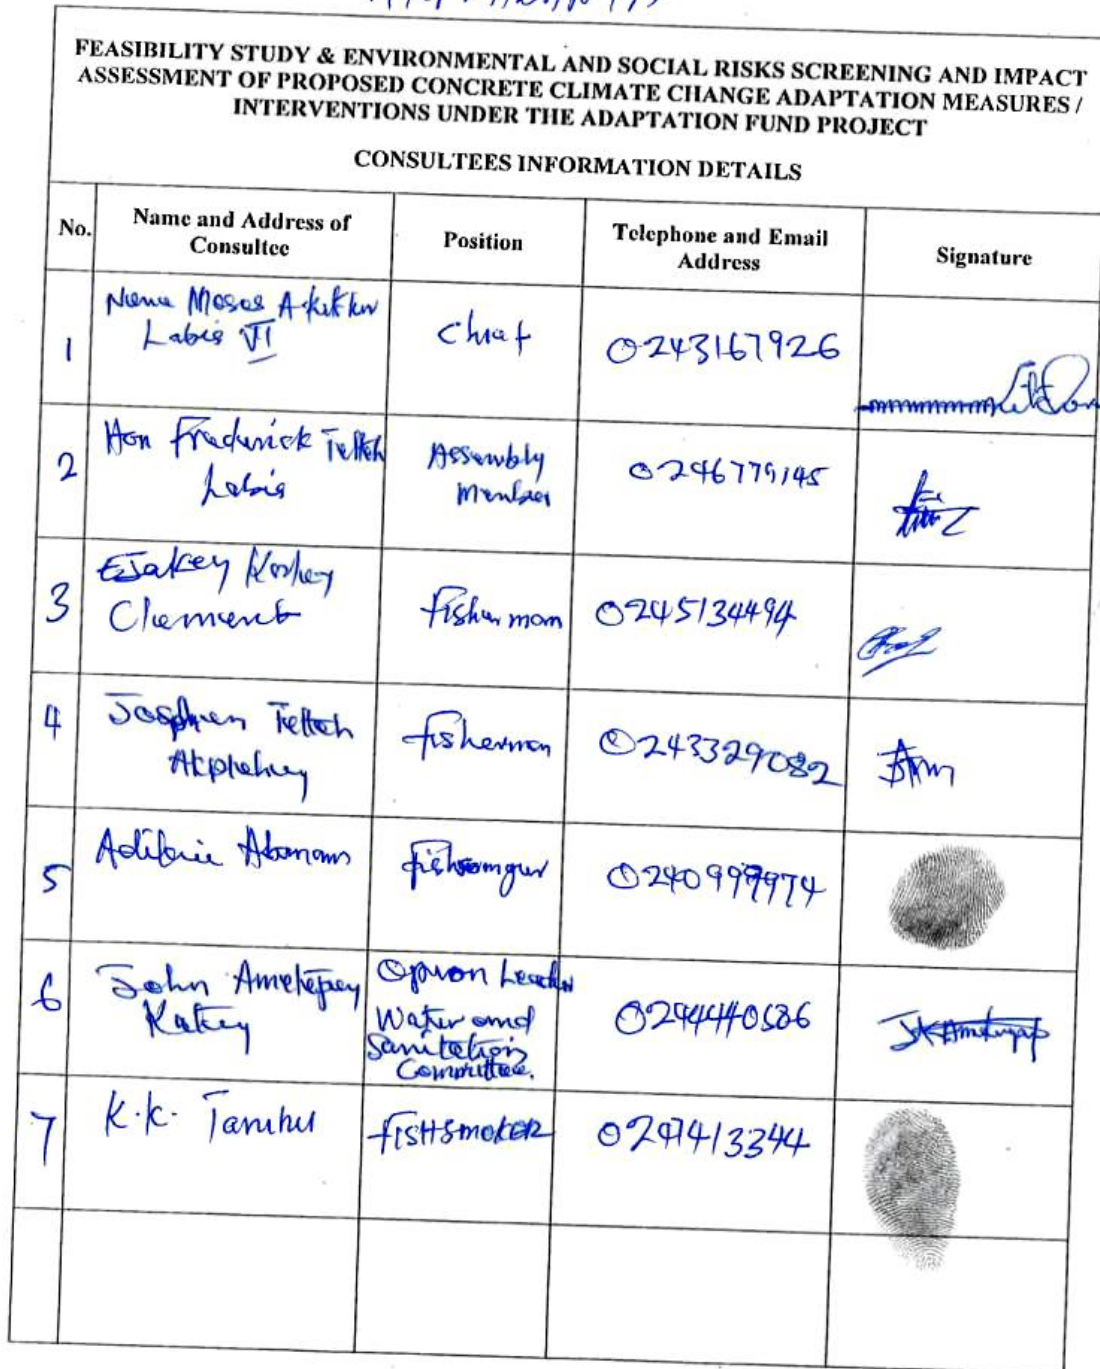 FEASIBILITY STUDY & ENVIRONMENTAL AND SOCIAL RISKS SCREENING AND IMPACT
ASSESSMENT OF PROPOSED CONCRETE CLIMATE CHANGE ADAPTATION MEASURES /
INTERVENTIONS UNDER THE ADAPTATION FUND PROJECT
CONSULTEES INFORMATION DETAILS
No. Name and Address of Consultee Position Telephone and Email Address Signature
1 Nene Moses
Labia VI Chief 0243167926
2 Hon Frederick Tetteh
Labia Assembly
Member 0246779145
3 Korley
Clement fisherman 0245134494
4 Tetteh
fisherman 0243329082
5 0240999974
6 John Ametepey
Katey Opinon Leader
Water and
Sanitation
Committee. 0244440586
7 K.K. fISHSmOKER 0247413344